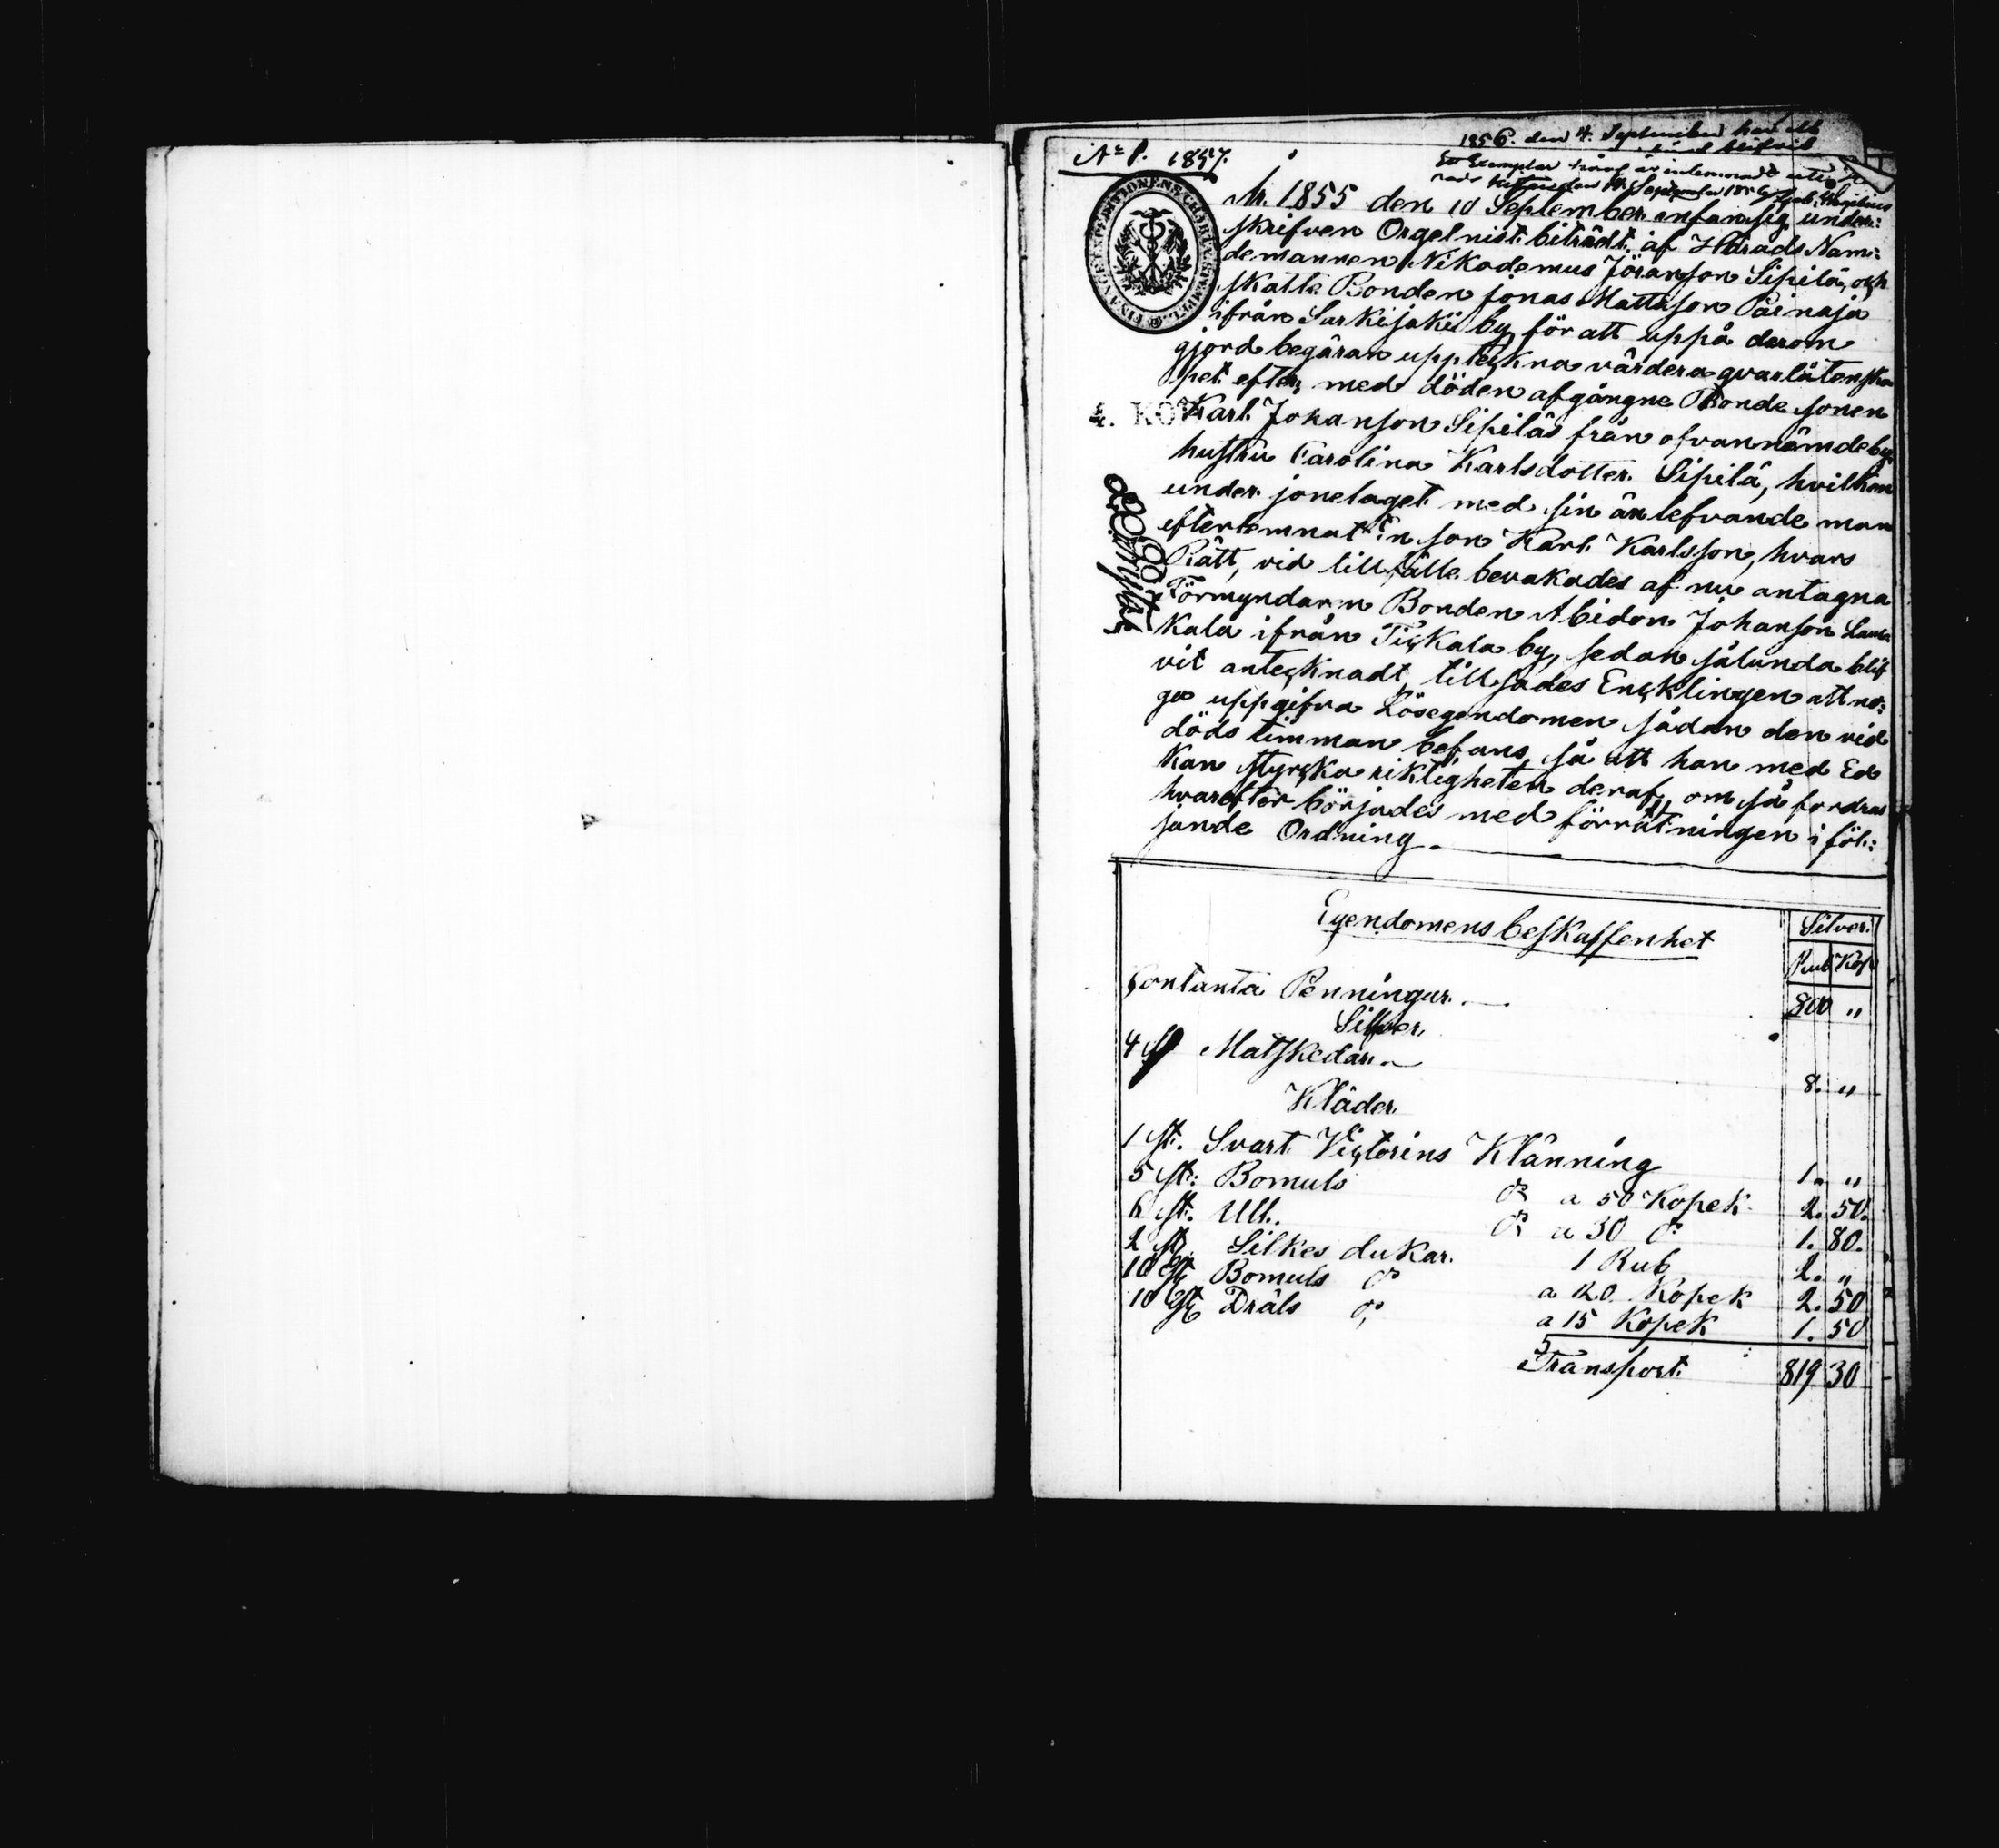 1856. den 4. September har ett
blifvit
Ett Exemplar häraf är inlemnadt
September 1856
No 1. 1857.
FINANCE EXPEDITIONENS CHARTÆ STEMPEL
År 1855 den 10 September infan sig under:
skrifven Orgelnist biträdt af Härads Näm:
demannen Nikodemus Jöranson Sipilä, och
skatte Bonden Jonas Mattsson Päinäjä
ifrån Särkijäki by, för att uppå derom
gjord begäran uppteckna värdera qvarlåtenska
pet efter med döden afgångne Bonde sonen
Karl Johanson Sipiläs från ofvannämde by
hustru Carolina Karlsdotter Sipilä, hvilken
under jonelaget med sin än lefvande man
efterlemnat En son Karl Karlsson, hvars
Rätt, vid tillfälle bevakades af nu antagna
Förmyndaren Bonden Abidon Johanson
kala ifrån Tickala by, sedan sålunda blif
vit antecknadt, tillsades Encklingen att no:
ga uppgifva Lösegendomen sådan den vid
döds timman befans, så att han med Ed
kan styrcka riktigheten deraf, om så fordras
hvarefter börjades med förrätningen i föl:
jande Ordning.
Egendomens beskaffenhet
Silver
Rub Kop
Contanta Penningar 800 "
Silfver
4 st Matskedar 8. "
Kläder
1 st. Svart Victorins Klänning 1. "
5 st: Bomuls do a 50 Kopek 2. 50.
6 st. Ull. do a 30 do 1. 80.
2 st. Silkes dukar. 1 Rub 2. "
10 st Bomuls do a 20 Kopek 2. 50
10 st Dräls do a 15 Kopek 1. 50
Transport 819 30